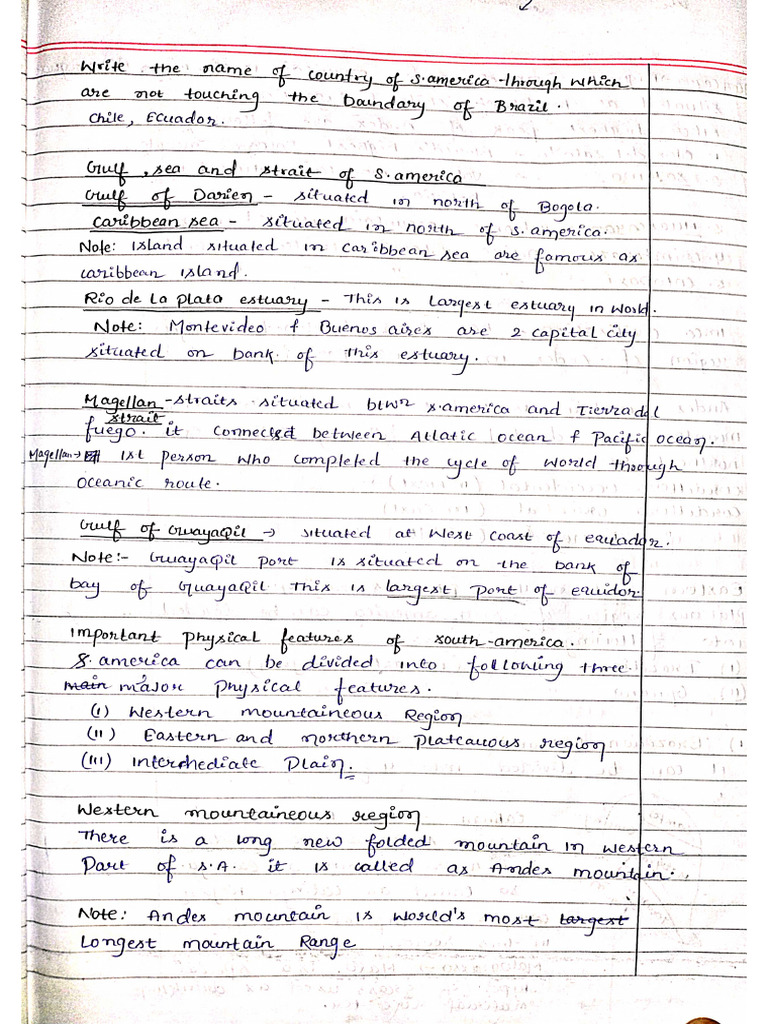 Write the name of country of S.america through which
are not touching the boundary of Brazil.
Chile, Ecuador.
Gulf, sea and strait of S.america
Gulf of Darien - situated in north of Bogola.
Caribbean sea - situated in north of S.america.
Note: island situated in caribbean sea are famous as
caribbean island.
Rio de La plata estuary - This is Largest estuary in world.
Note: Montevideo & Buenos aires are 2 capital city
situated on bank of this estuary.
Magellan - straits situated btwn s.america and Tierra del
strait
fuego. it connected between Atlatic ocean & Pacific ocean.
Magellan → 1st person who completed the cycle of world through
oceanic route.
Gulf of GwayaQil → situated at west coast of equador.
Note:- GwayaQil port is situated on the bank of
bay of GuayaQil this is largest port of equidor.
Important physical features of south-america.
S. america can be divided into following three
main major physical features.
(I) Western mountaineous Region
(II) Eastern and northern plateauous region
(III) Intermediate plain.
Western mountaineous region
There is a long new folded mountain in western
Part of S.A. it is called as Andes mountain.
Note: Andes mountain is world's most largest
Longest mountain Range